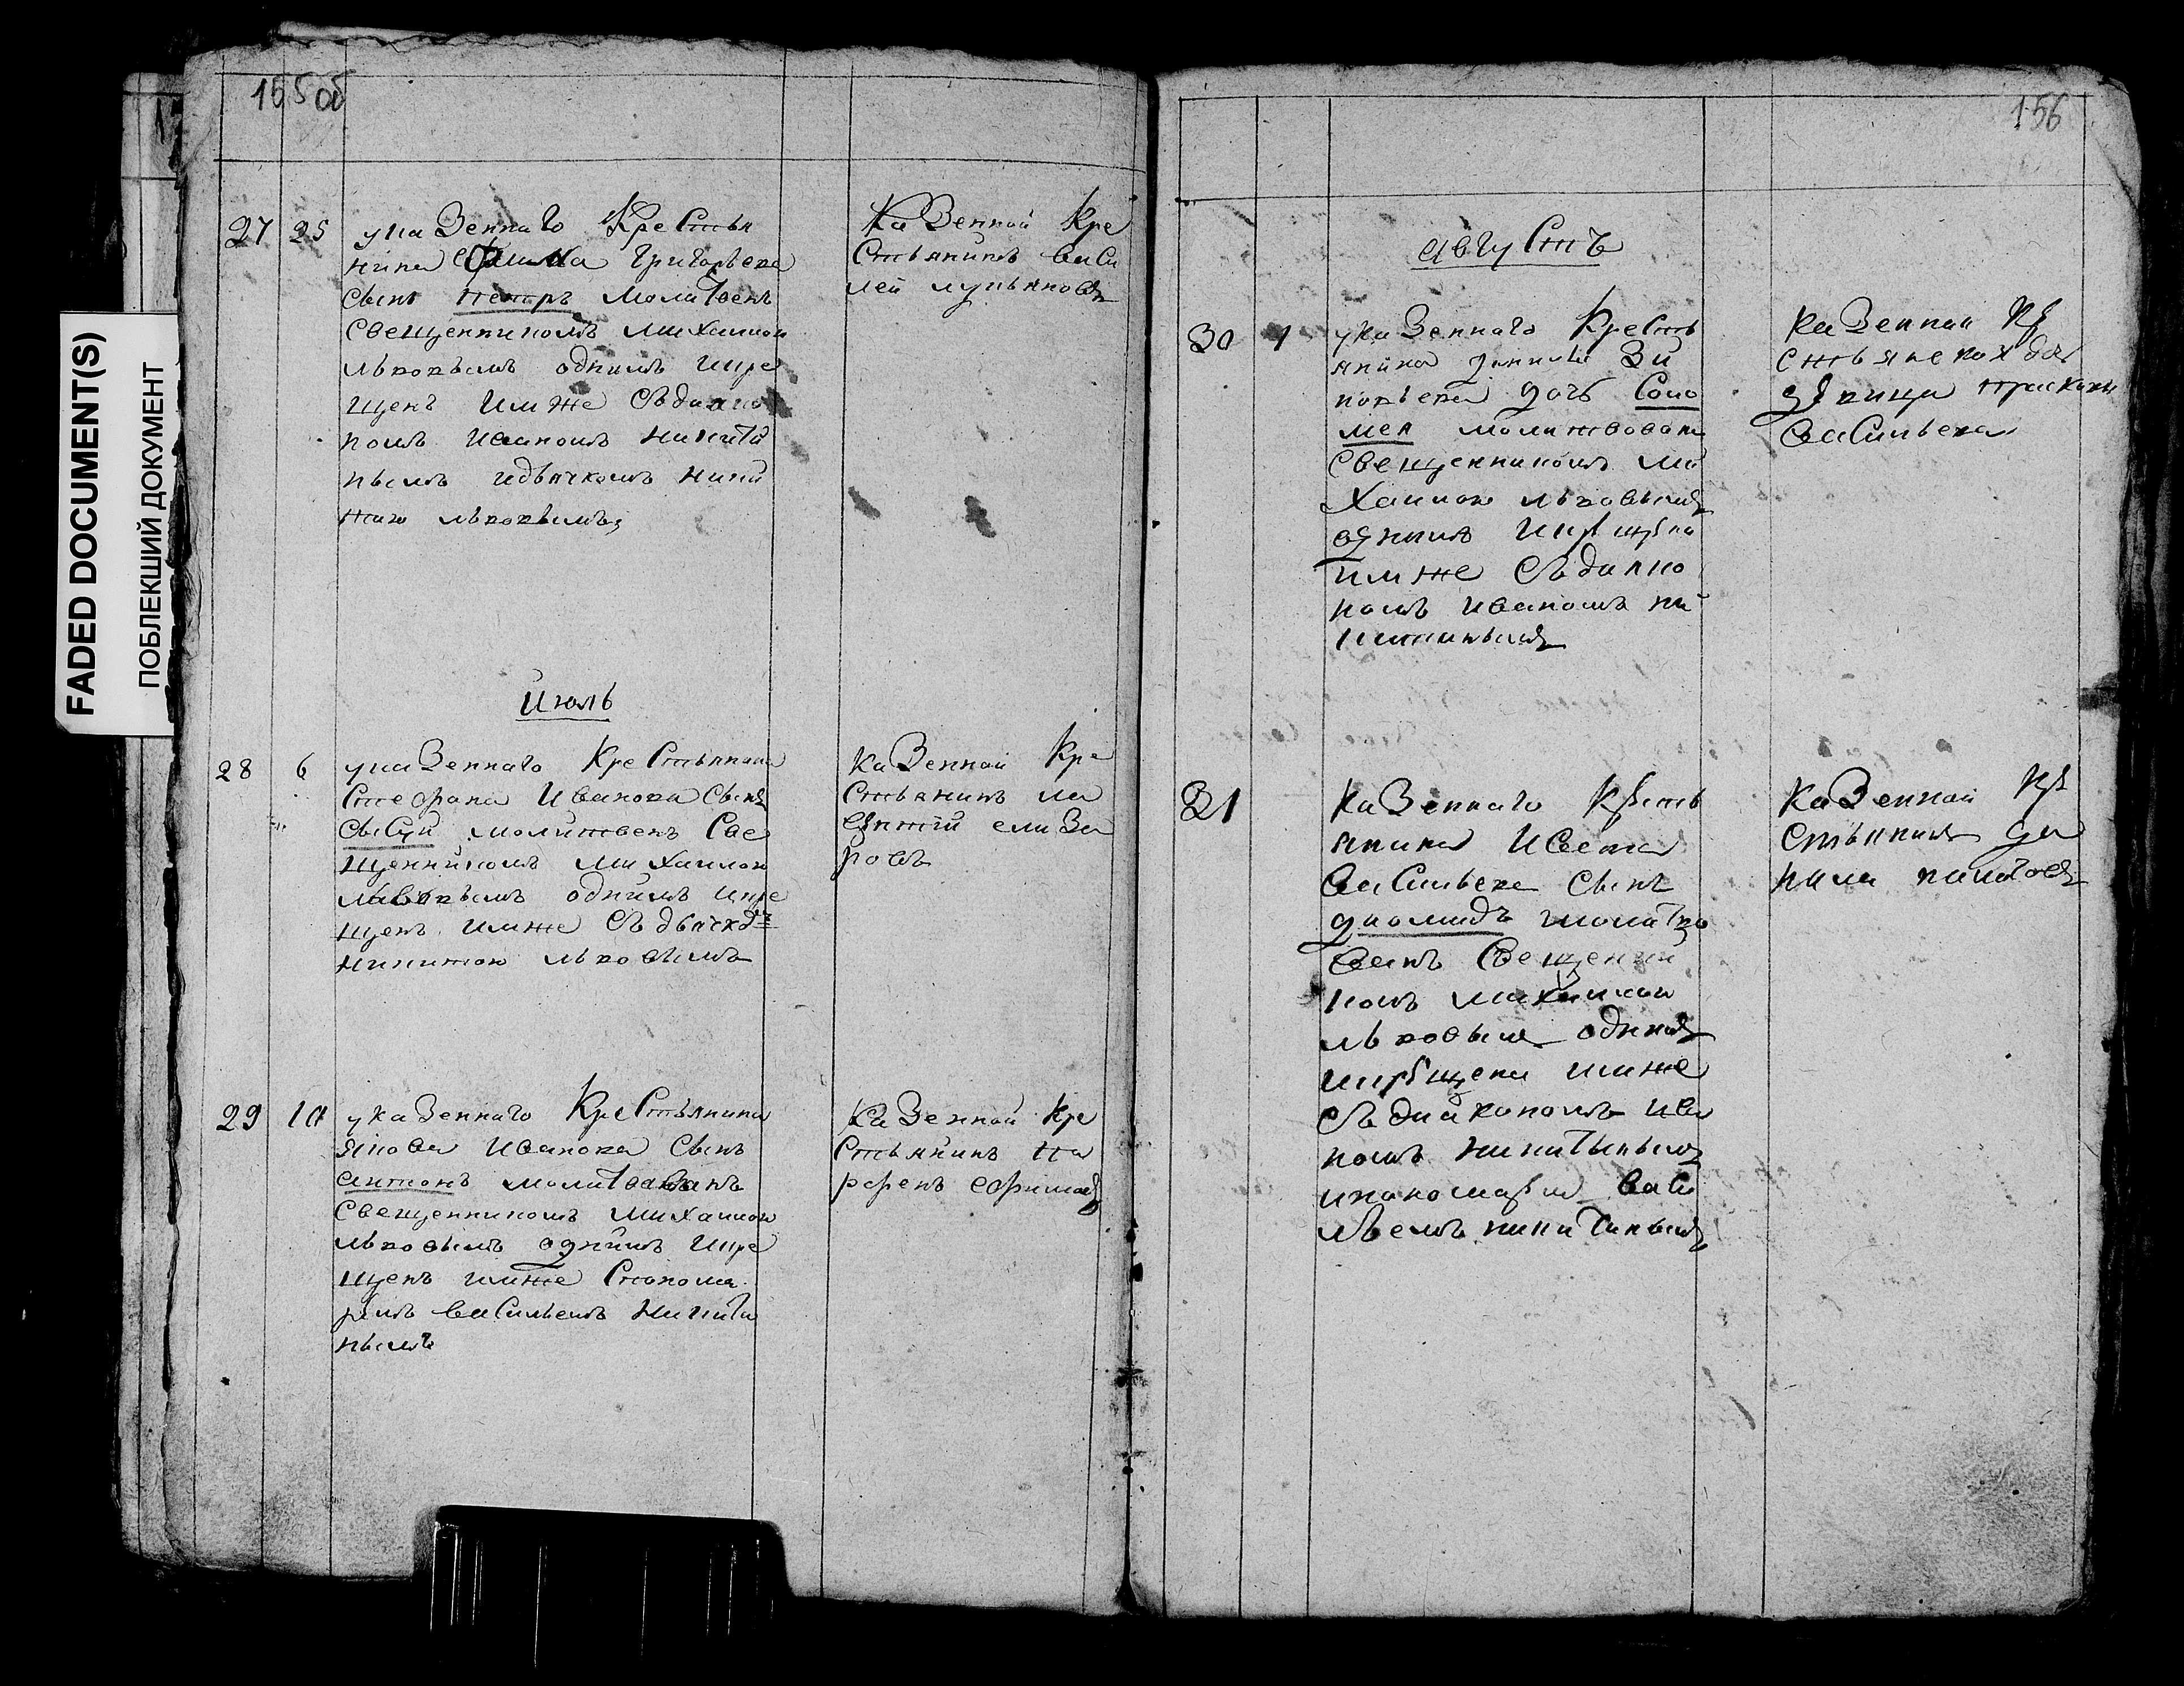 FADED DOCUMENT(S)
ПОБЛЕКШИЙ ДОКУМЕНТ
155об
27 25
указеннаго крестья
нина Григорьева
сынъ петръ молитвенъ
свещенникомъ михаилою
львовымъ однимъ икре
щенъ имже съдиако
номъ иваномъ никити
нымъ идьячкомъ ники
тою львовымъ
казенной кре
стьянинъ васи
лей лукьяновъ
Июль
28 6
указеннаго крестьянина
стефана Иванова сынъ
сысой молитвенъ све
щенникомъ михаилою
львовымъ однимъ икре
щенъ имже съдьячко
никитою львовымъ
казенной кре
стьянинъ ла
елиза
ровъ
29 10
указеннаго крестьянина
якова Иванова сынъ
антонъ молитвованъ
свещенникомъ михаилою
львовымъ однимъ икре
щенъ имже спонома
ремъ васильемъ никити
нымъ
казенной кре
стьянинъ па
рфенъ ефимовъ
156
августъ
30 1
указеннаго кресть
янина данила зи
новьева дочь соло
мея молитвована
свещенникомъ ми
хаилою львовымъ
однимъ икрещена
имже съдиако
номъ иваномъ ни
китинымъ
казенная кре
стьянско дв
девица
васильева
31
казеннаго кресть
янина Ивана
васильева сынъ
диомидъ молитво
ванъ свещенни
комъ михаилою
львовымъ однимъ
икрещенъ имже
съдиакономъ ива
номъ никитинымъ
ипономаремъ васи
льемъ никитинымъ
казенной кре
стьянинъ да
нила